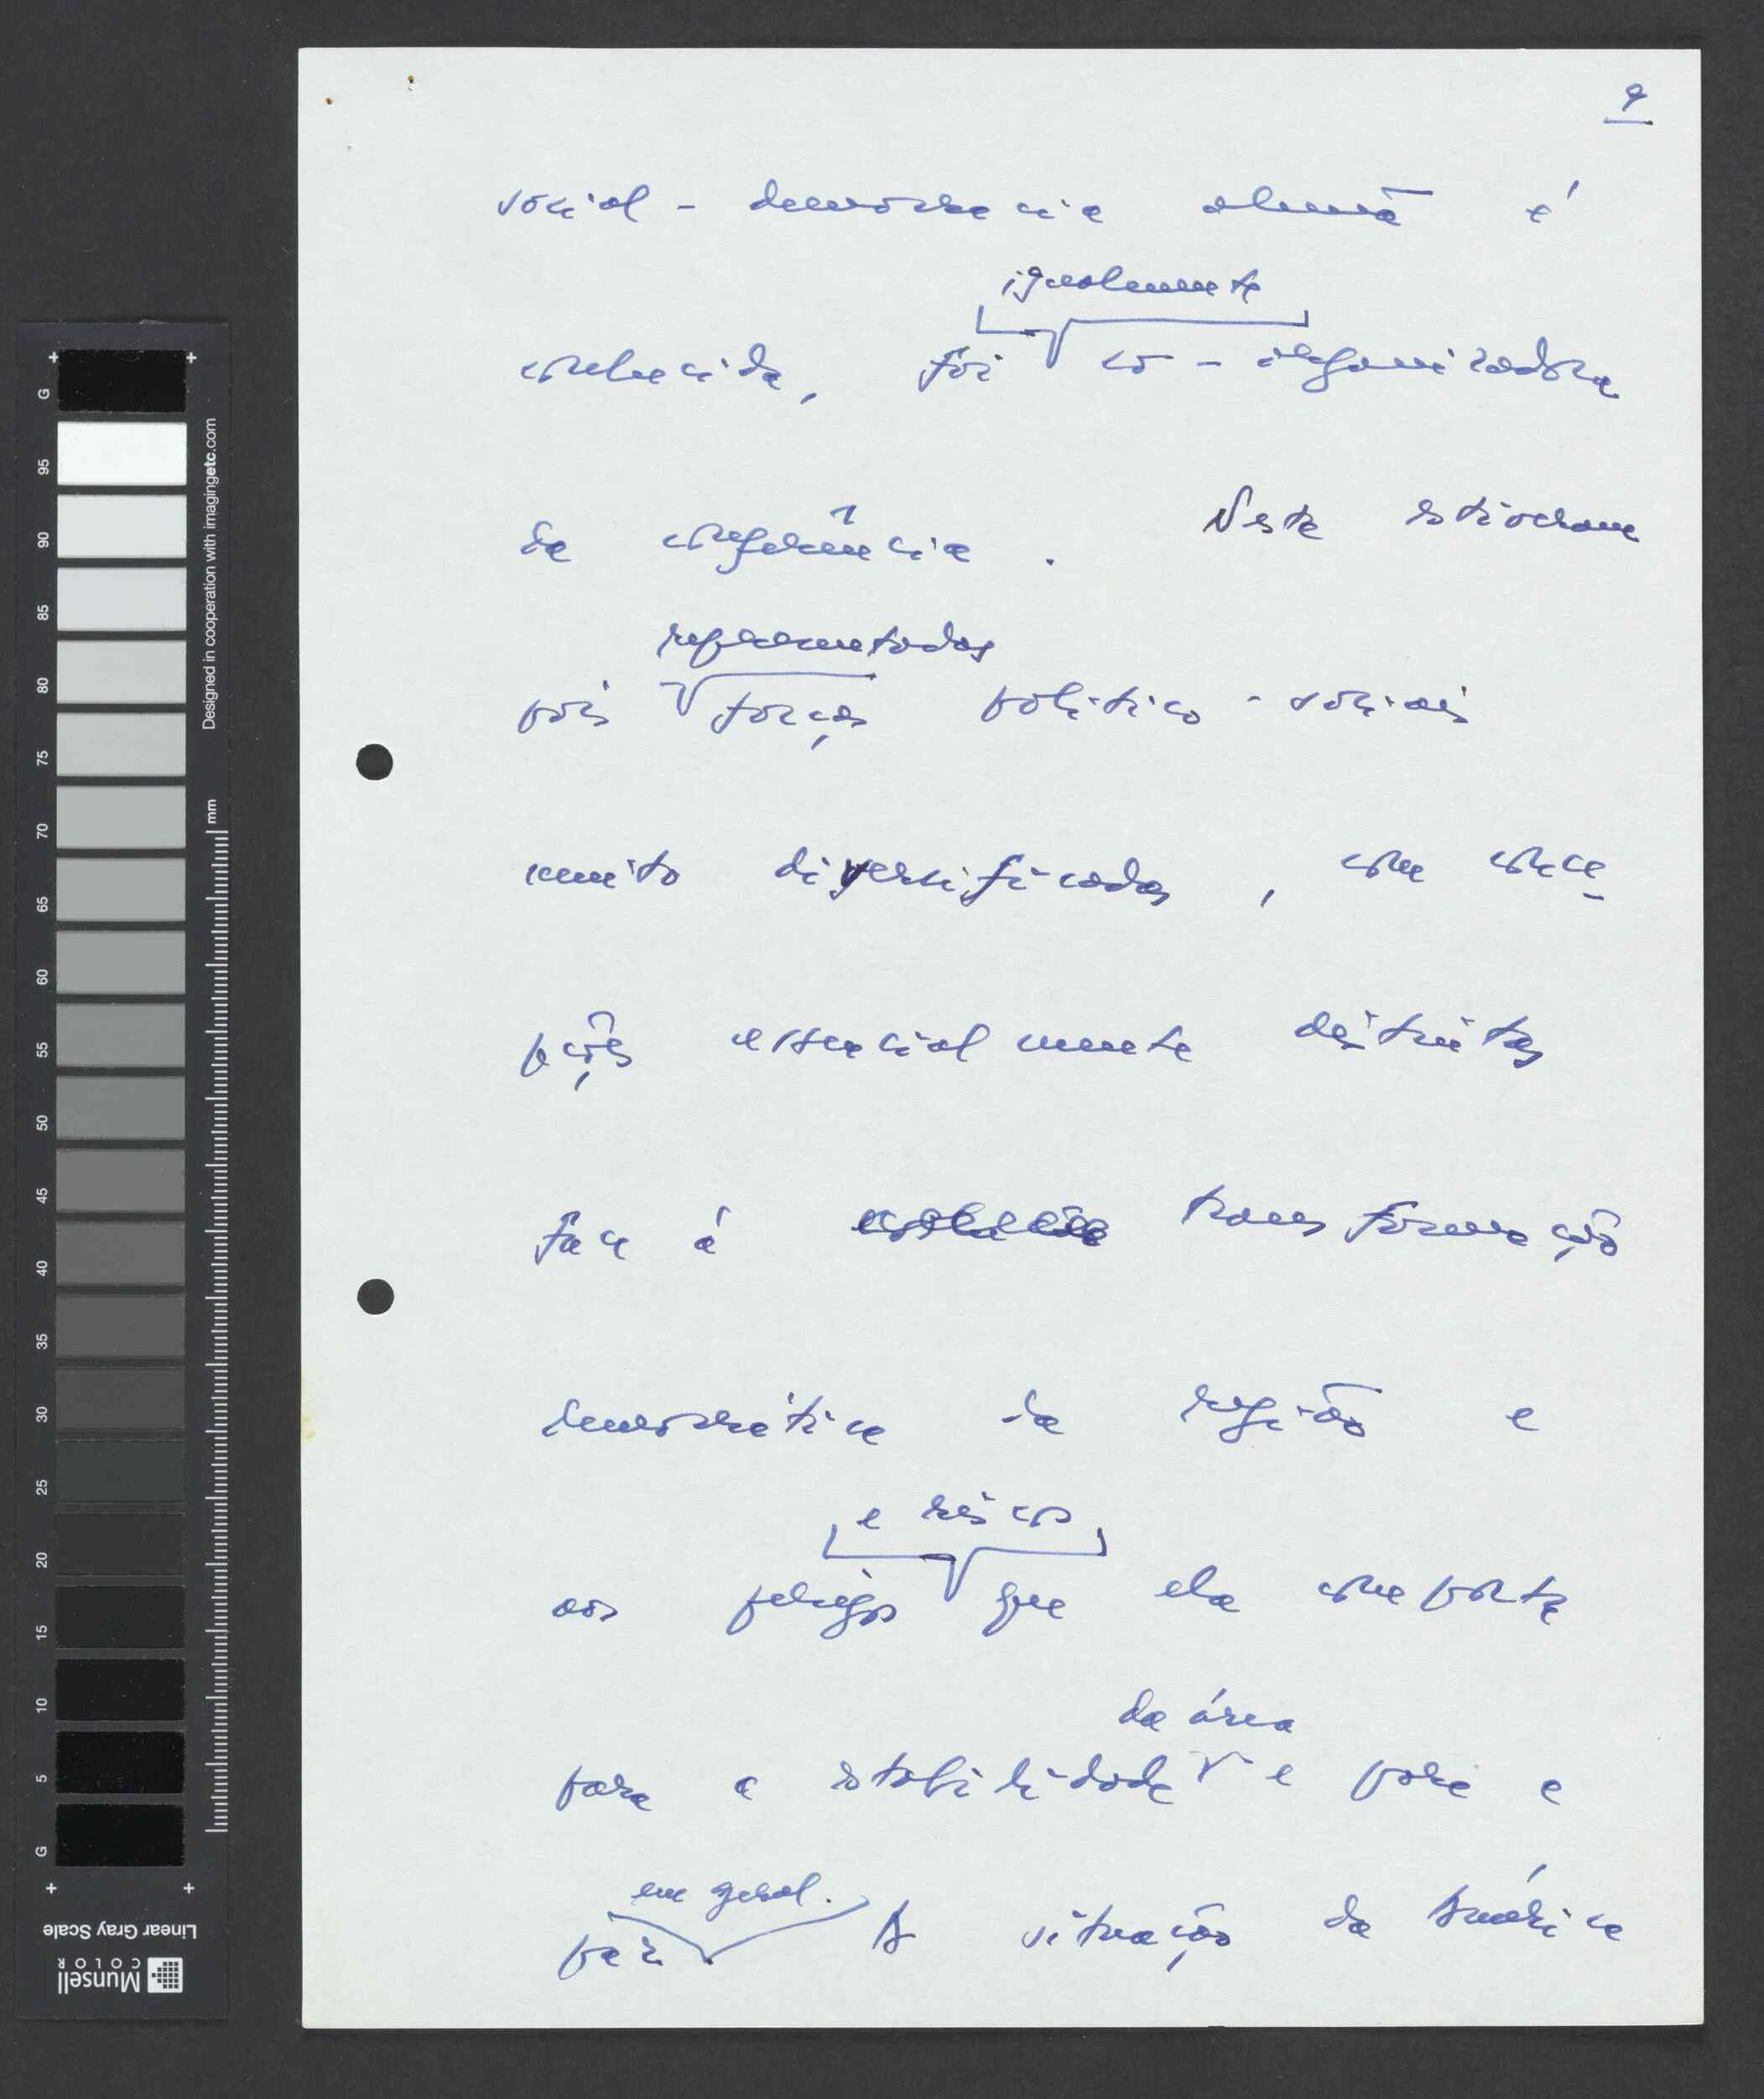 9
social-democracia alemã é
igualmente
conhecida, foi co-organizadora
da conferência. Nesta estiveram
representadas
pois forças político-sociais
muito diversificadas, com conce-
pções essencialmente distintas
face à transformação
democrática da região e
e riscos
aos perigos que ela comporta
da área
para a estabilidade e para a
em geral.
paz. A situação da América
G 95 90 85 80 75 70 65 60 55 50 45 40 35 30 25 20 15 10 5 G
Designed in cooperation with imagingetc.com
mm
Linear Gray Scale
Munsell
COLOR